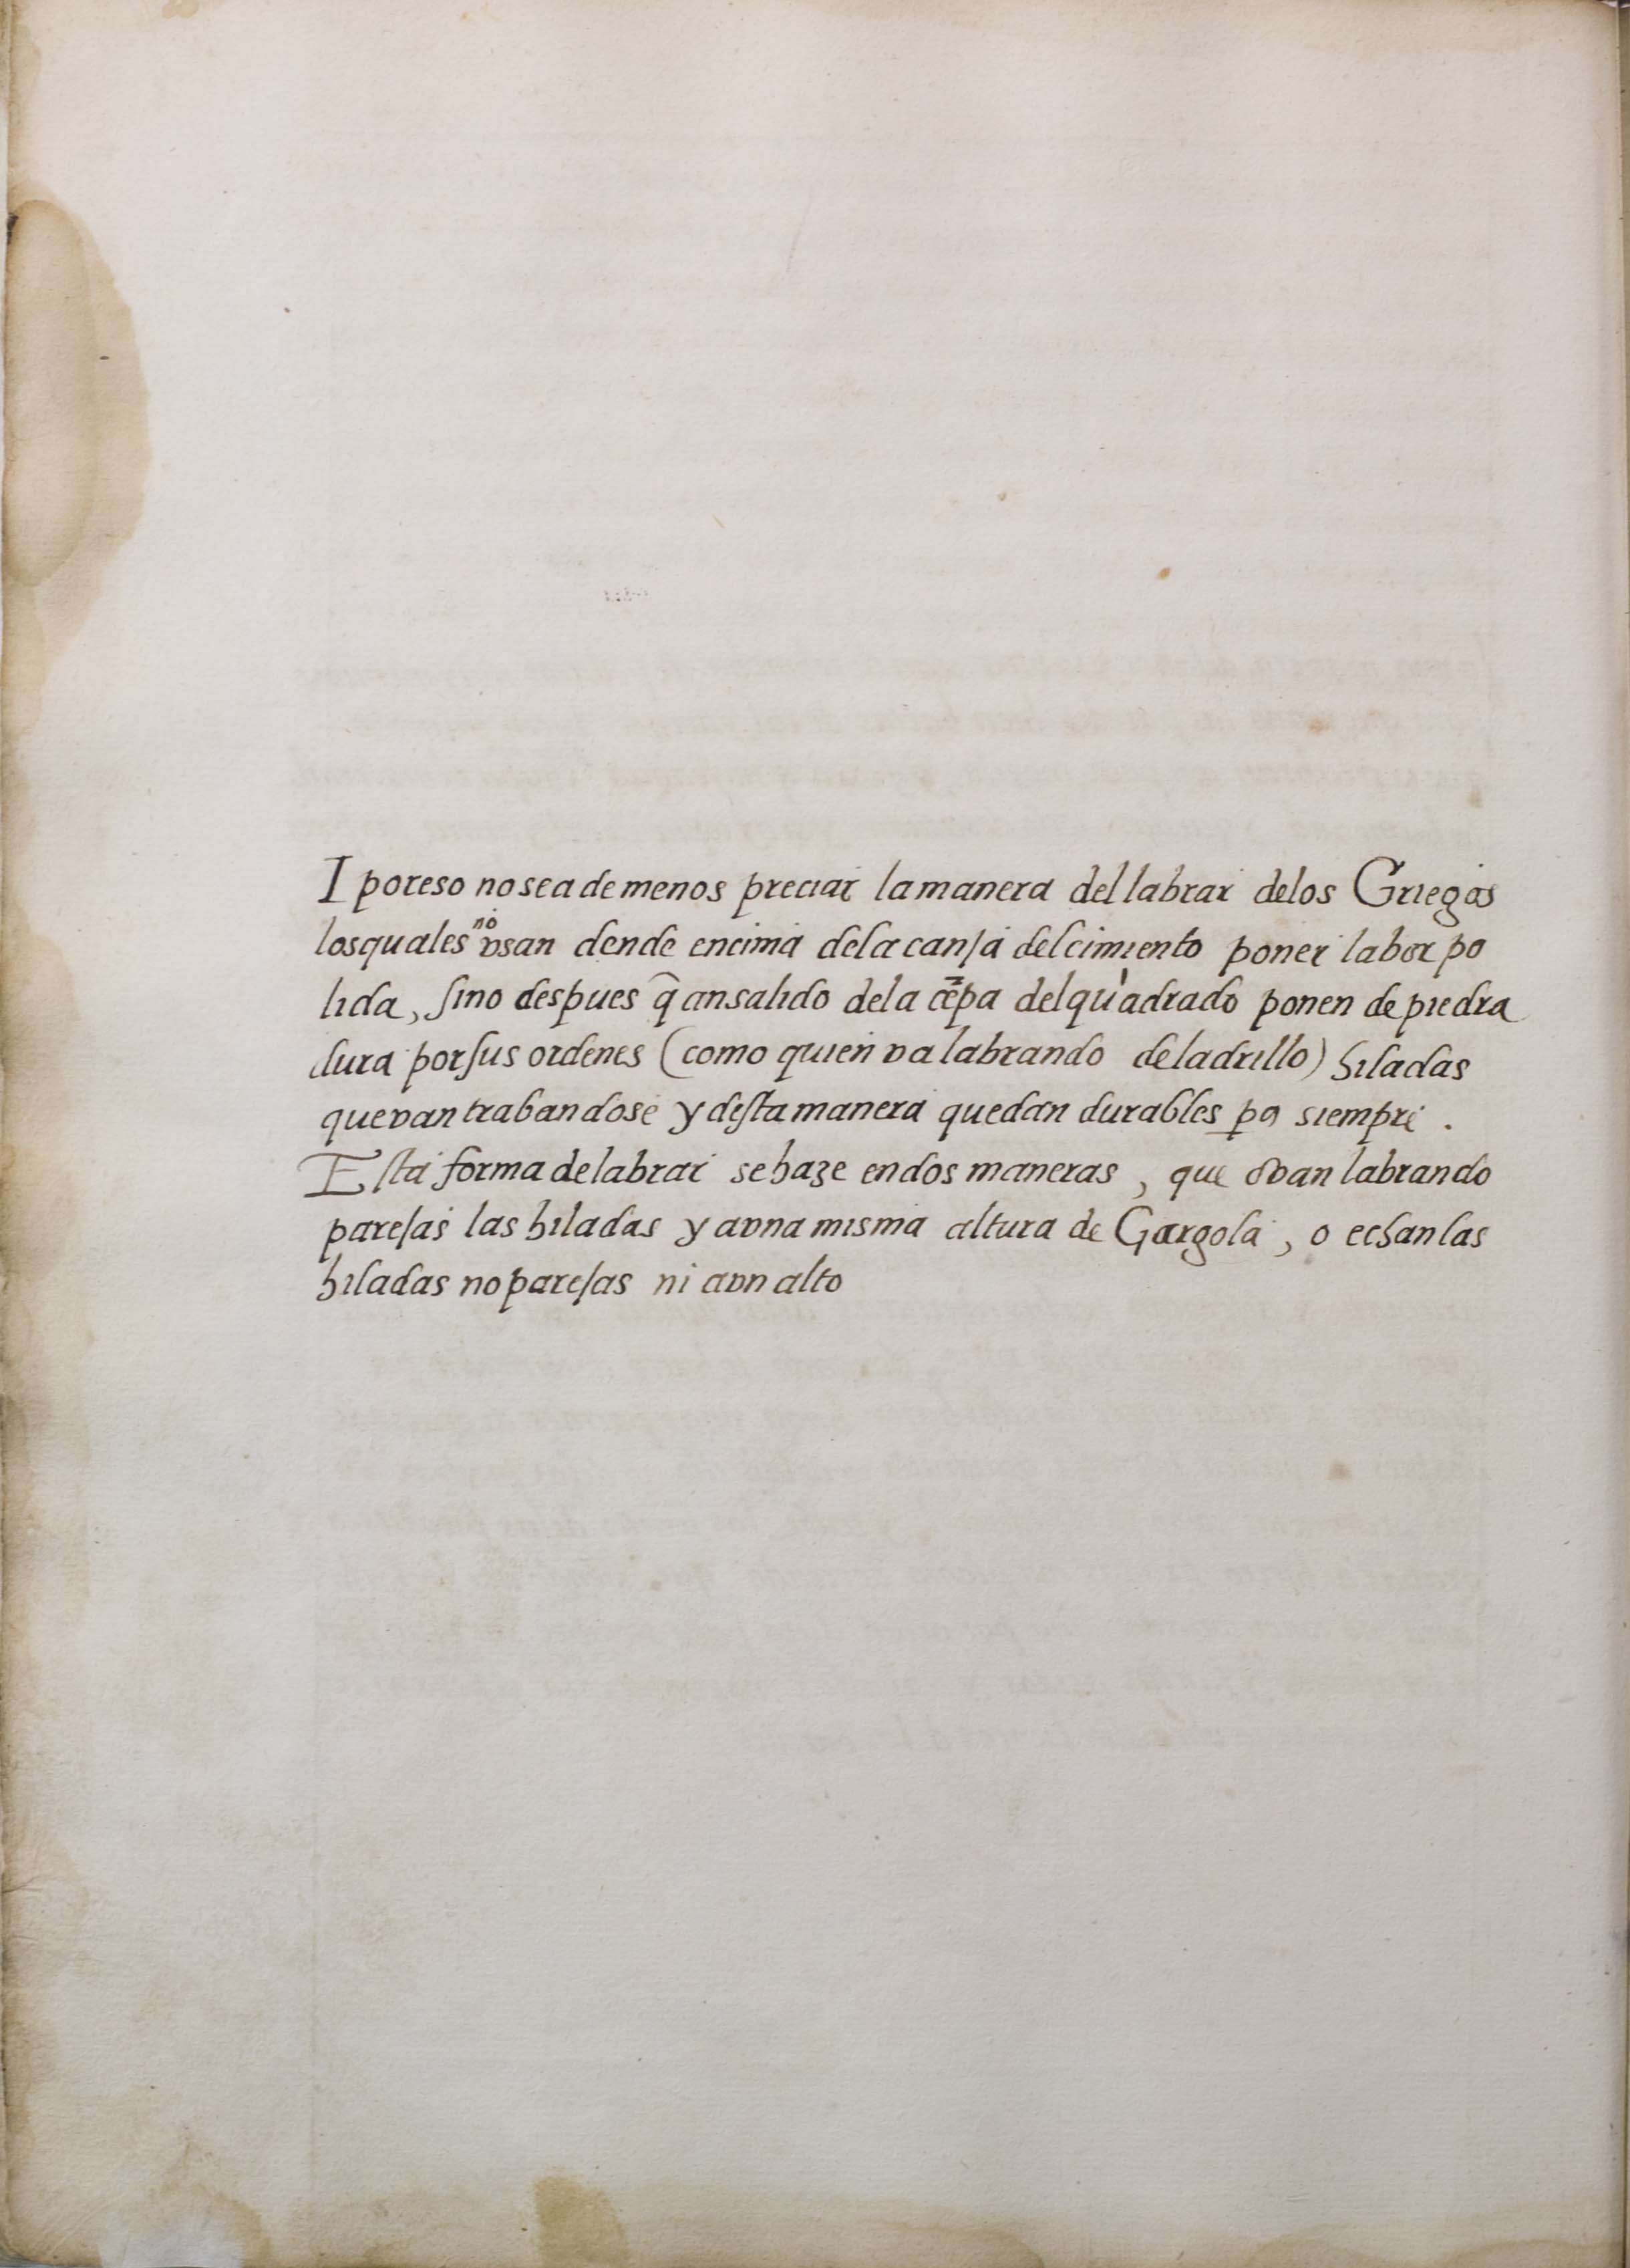 I poreso nosea de menos preciar lamanera del labrar delos Griegos
losquales no vsan dende encima dela canja delcimiento poner labor po
lida, sino despues q̃ ansalido dela cẽpa delquadrado ponen de piedra
dura porsus ordenes (como quien va labrando deladrillo) hiladas
quevan trabandose y desta manera quedan durables pa siempre.
Esta forma delabrar sehaze endos maneras, que ovan labrando
parejas las hiladas y avna misma altura de Gargola, o echanlas
hiladas noparejas ni avn alto